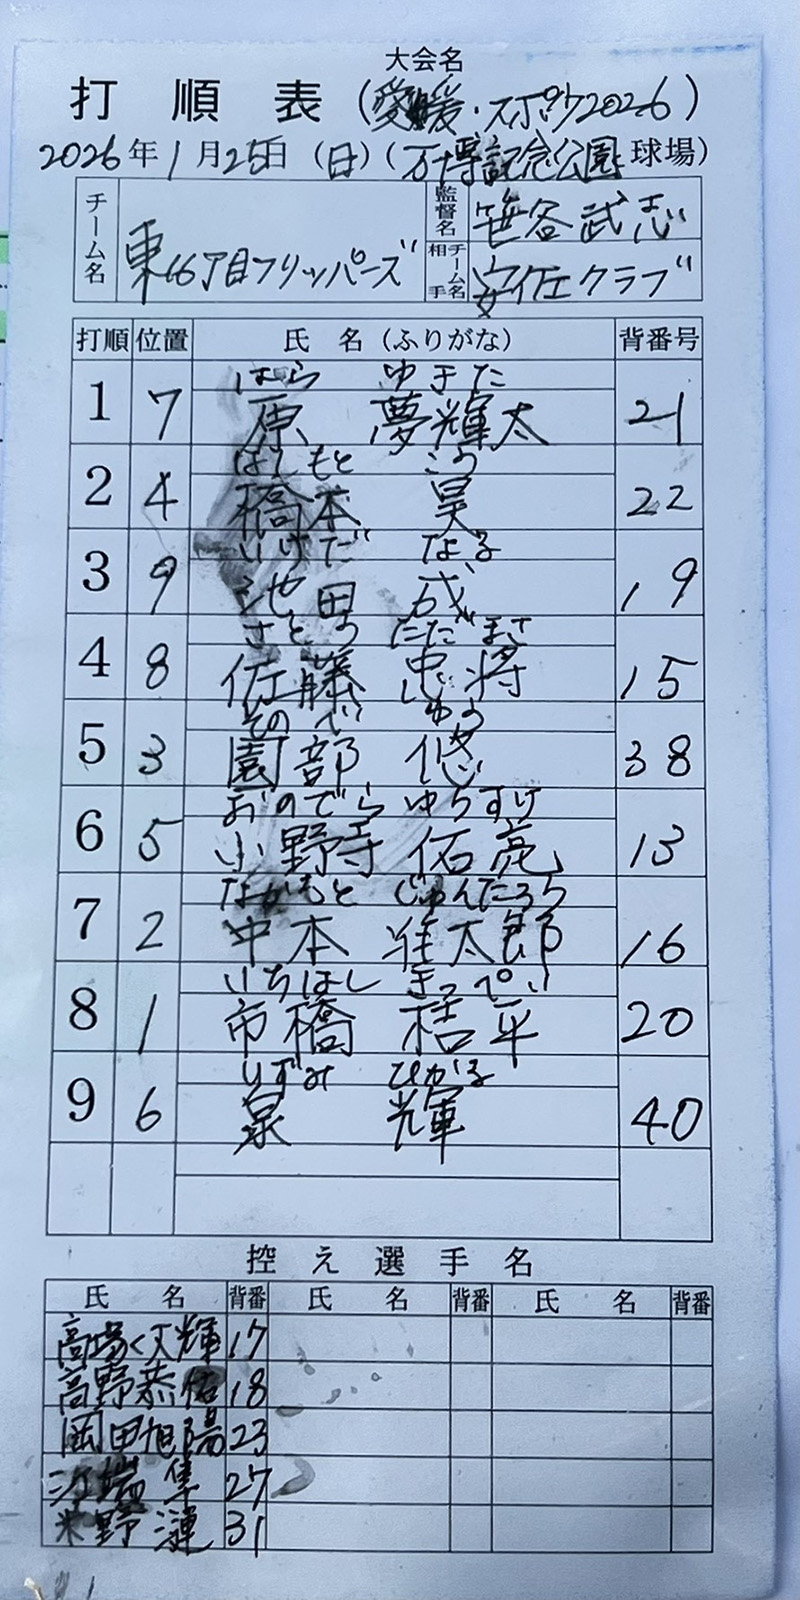 大会名
打順表(愛媛・スポゥ2026)
2026年1月25日(日)(万博記念公園球場)
チーム名 東46丁目フリッパーズ
監督名 笹谷武志
相手チーム名 安佐クラブ
打順 位置 氏名(ふりがな) 背番号
はら ゆきた
1 7 原 夢輝太 21
はしもと こう
2 4 橋本 昊 22
いけだ なる
3 9 池田 成 19
さとう ただまさ
4 8 佐藤 忠将 15
そのべ ゆう
5 3 園部 悠 38
おのでら ゆうすけ
6 5 小野寺 佑亮 13
なかもと じゅんたろう
7 2 中本 准太郎 16
いちはし きっぺい
8 1 市橋 桔平 20
いずみ ひかる
9 6 泉 輝 40
控え選手名
氏名 背番 氏名 背番 氏名 背番
高場 輝 17
高野恭佑 18
岡田旭陽 23
江端隼 27
米野漣 31